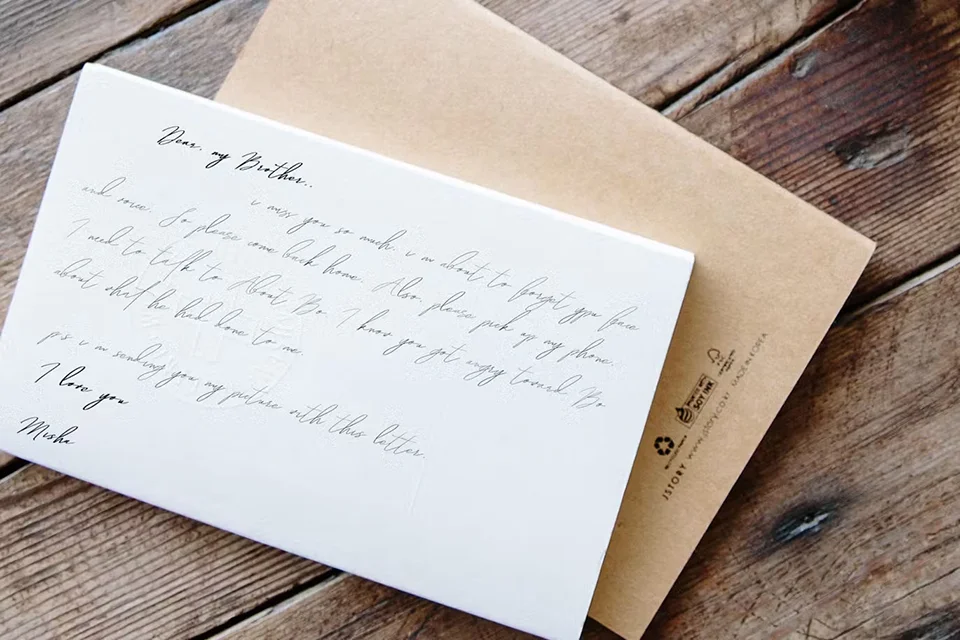 Dear, my Brother..
i miss you so much. i m about to forget ypu face
and voice. So please come back home. Also, please pick up my phone.
I need to talk to About Bo. I know you got angry toward Bo
about what he had done to me.
p.s i m sending you my picture with this letter.
I love you
Misha
PRINTED WITH
SOY INK
MADE IN KOREA
JSTORY www.jstory.co.kr